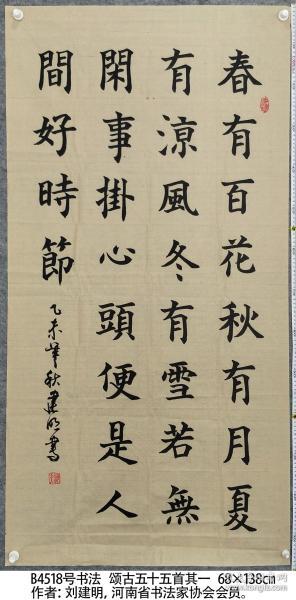 春有百花秋有月夏
有涼風冬有雪若無
閑事掛心頭便是人
間好時節
乙未年秋建明書
B4518号书法 颂古五十五首其一 68×138cm
作者: 刘建明, 河南省书法家协会会员。